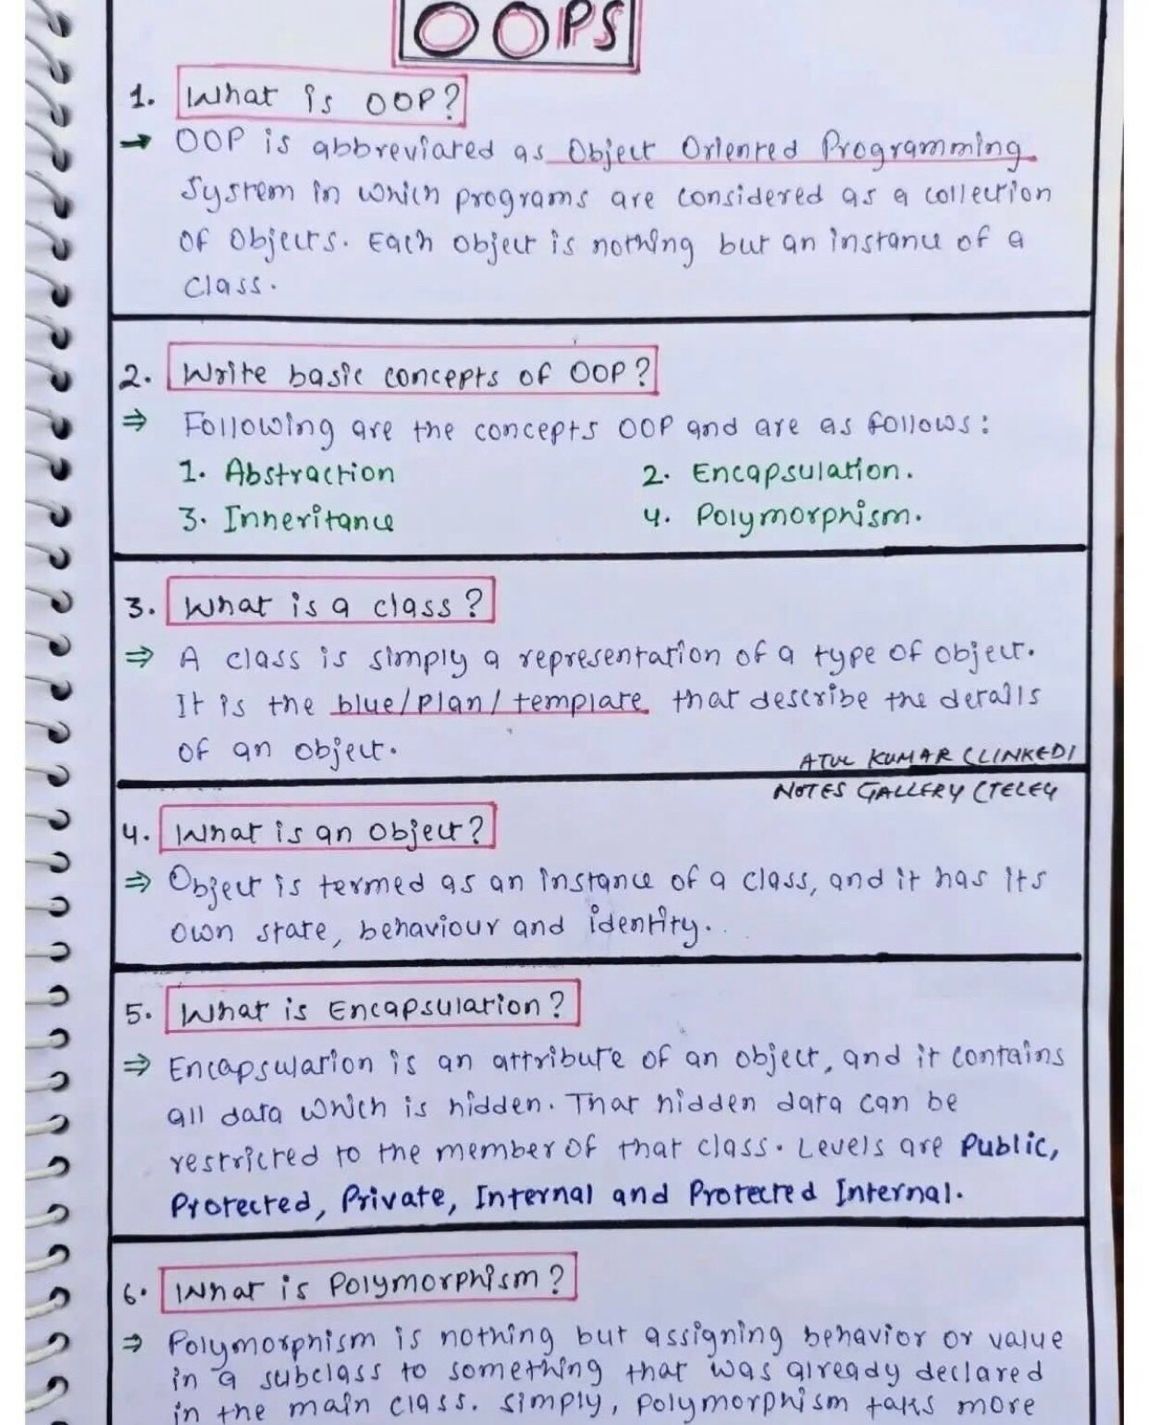 OOPS
1. What is OOP?
→ OOP is abbreviated as Object Oriented Programming
System in which programs are considered as a collection
of objects. Each object is nothing but an instance of a
class.
2. Write basic concepts of OOP?
⇒ Following are the concepts OOP and are as follows:
1. Abstraction 2. Encapsulation.
3. Inheritance 4. Polymorphism.
3. What is a class?
⇒ A class is simply a representation of a type of object.
It is the blue/plan/template that describe the details
of an object.
ATUL KUMAR (LINKEDI
NOTES GALLERY (TELEG
4. What is an object?
⇒ Object is termed as an instance of a class, and it has its
own state, behaviour and identity.
5. What is Encapsulation?
⇒ Encapsulation is an attribute of an object, and it contains
all data which is hidden. That hidden data can be
restricted to the member of that class. Levels are Public,
Protected, Private, Internal and Protected Internal.
6. What is Polymorphism?
⇒ Polymorphism is nothing but assigning behavior or value
in a subclass to something that was already declared
in the main class. Simply, polymorphism takes more